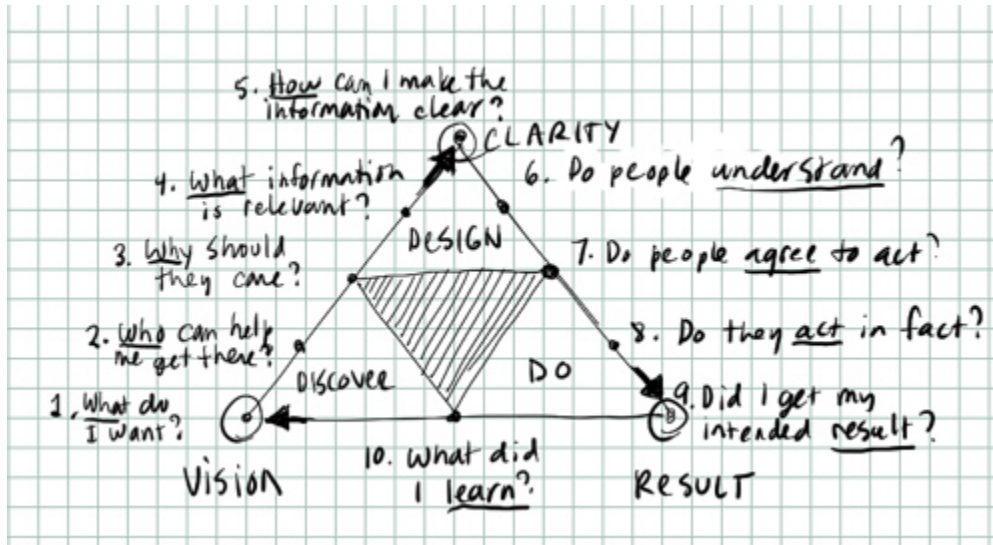 5. How can I make the
information clear?
CLARITY
4. What information
is relevant?
6. Do people understand?
DESIGN
3. Why should
they care?
7. Do people agree to act?
2. Who can help
me get there?
8. Do they act in fact?
DISCOVER
DO
1. What do
I want?
9. Did I get my
intended result?
10. What did
I learn?
Vision
RESULT